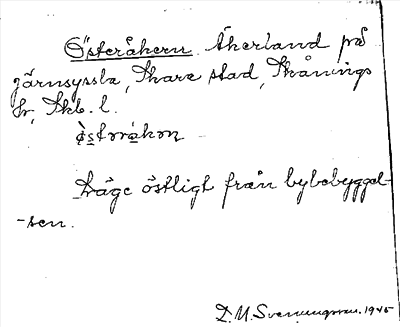 Österåkern Åkerland på
järnsyssla, Skara stad, Skånings
hr, Skb. l.
Läge östligt från bybebyggel-
-sen.
D.U.Svenungsson. 1945